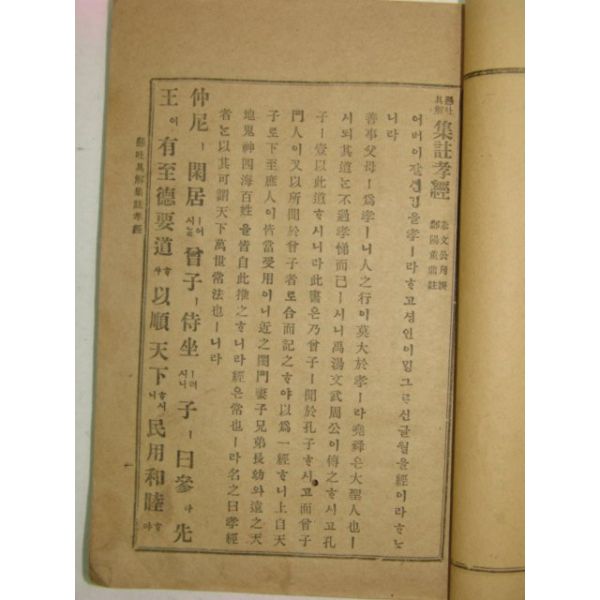 懸吐具解 集註孝經 朱文公刊誤 鄱陽董鼎註
어버이잘셤김을孝ㅣ라ᄒᆞ고셩인이밍그르신글월을經이라ᄒᆞᄂᆞ
니라
善事父母ㅣ爲孝ㅣ니人之行이莫大於孝ㅣ라堯舜은大聖人也ㅣ
시되其道는不過孝悌而已ㅣ시니禹湯文武周公이傳之ᄒᆞ시고孔
子ㅣ壹以此道ᄒᆞ시니라此書은乃曾子ㅣ聞於孔子ᄒᆞ시고而曾子
門人이又以所聞於曾子者로合而記之ᄒᆞ야以爲一經ᄒᆞ니上自天
子로下至庶人이皆當受用이니近之閨門妻子兄弟長幼와遠之天
地鬼神四海百姓을皆自此推之ᄒᆞ니라經은常也ㅣ라名之曰孝經
者는以其可謂天下萬世常法也ㅣ니라
仲尼ㅣ閑居ㅣ어시늘曾子ㅣ侍坐ㅣ러시니子ㅣ曰參아先
王이有至德要道ᄒᆞ샤以順天下ᄒᆞ시니民用和睦ᄒᆞ야
懸吐具解集註孝經